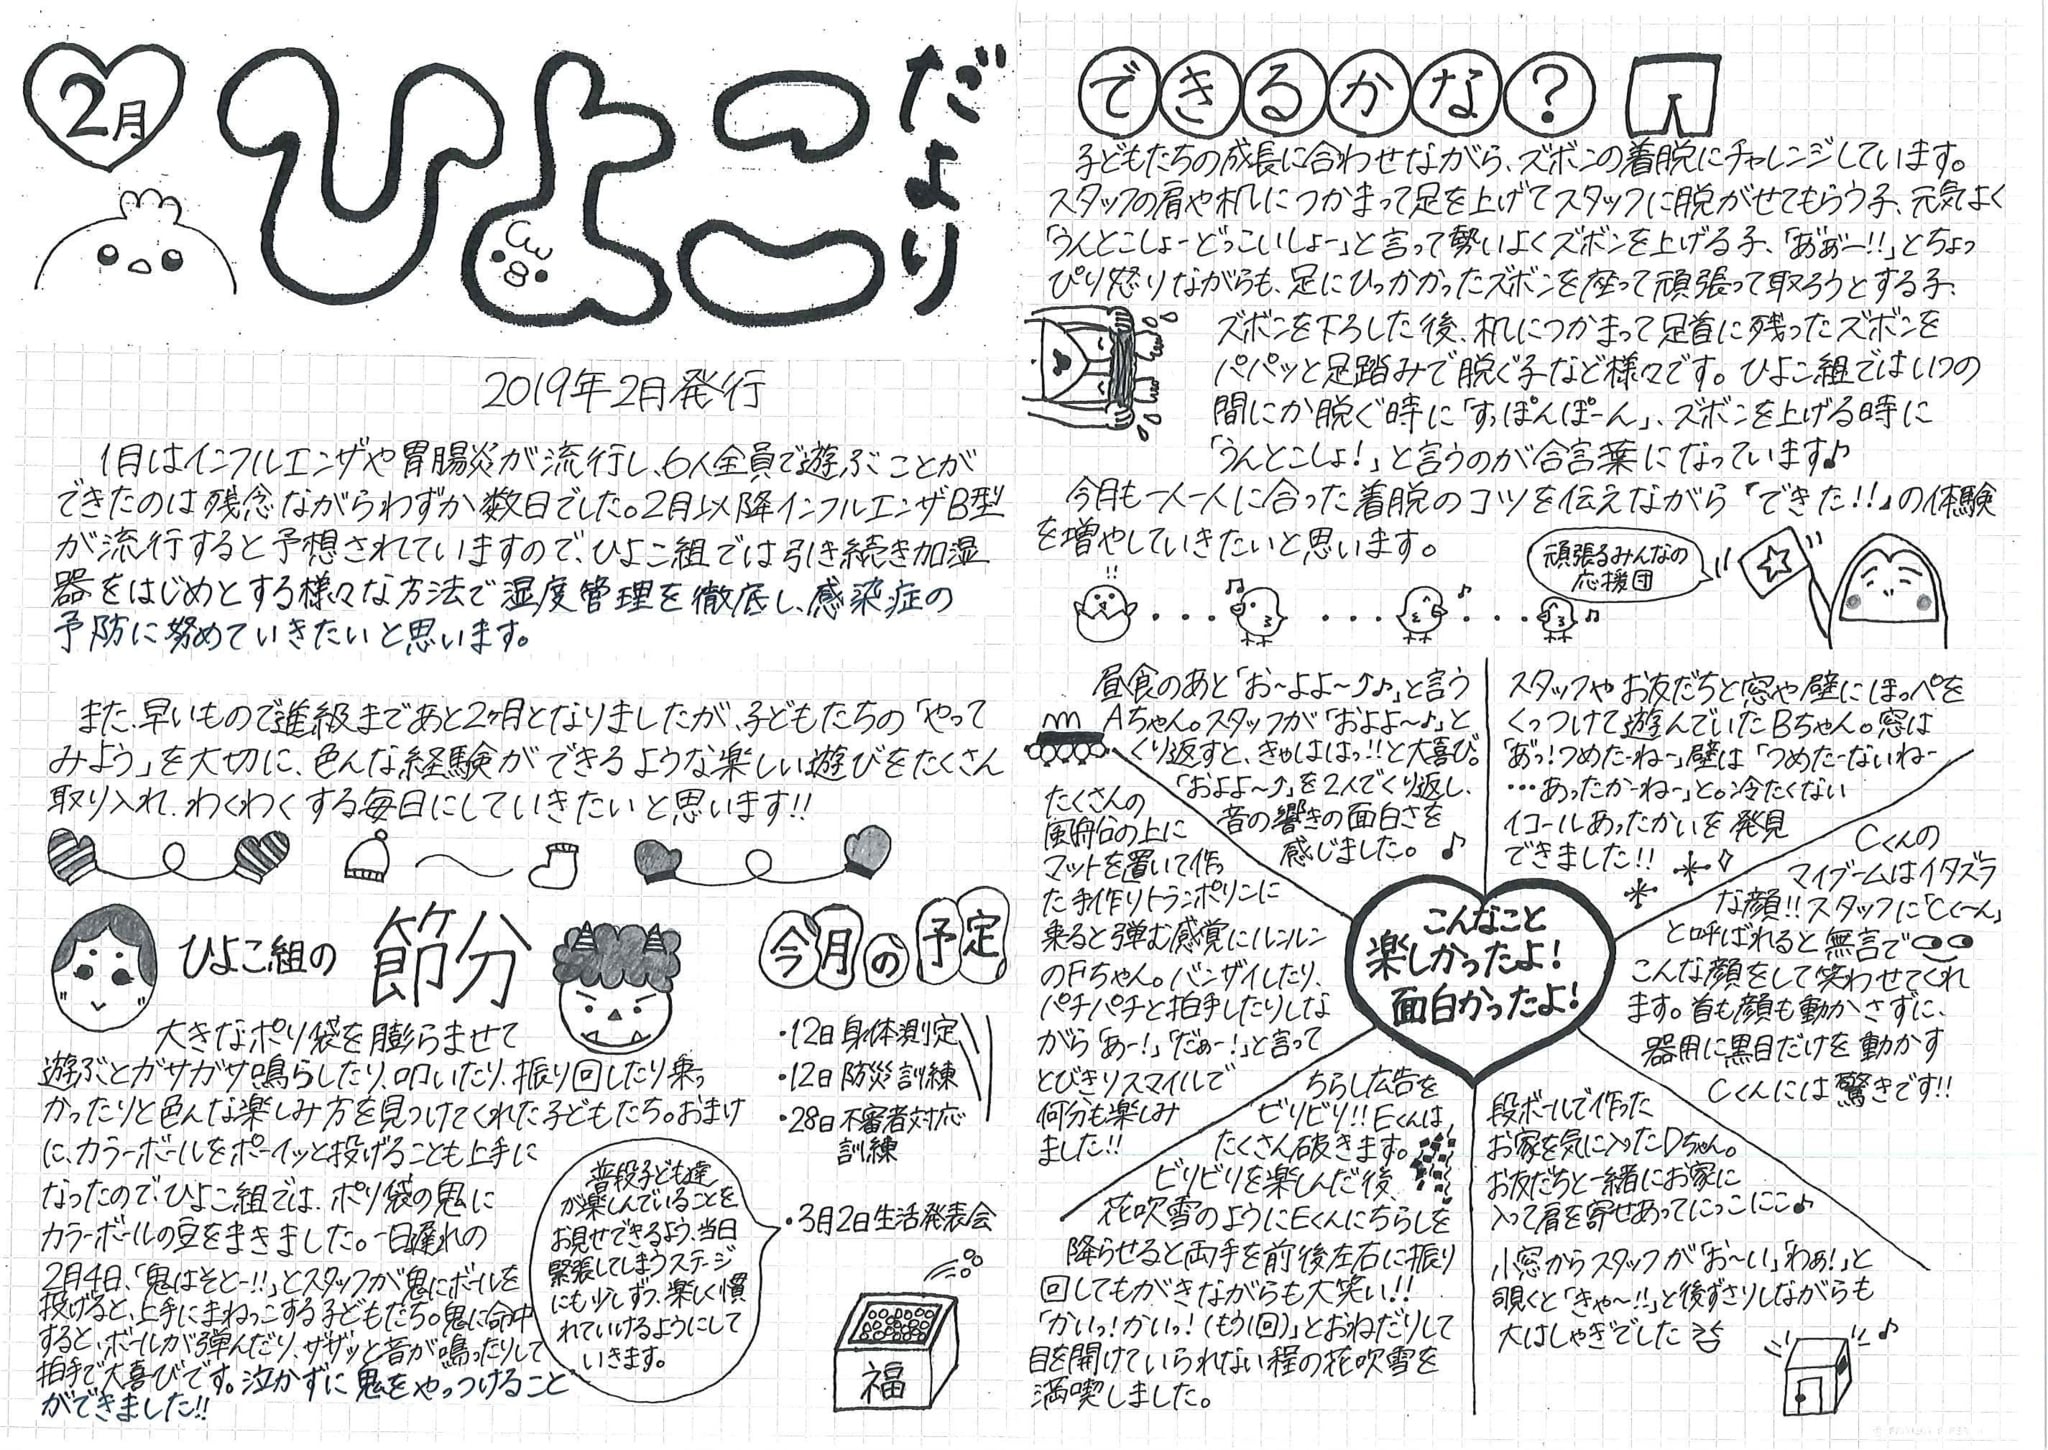 2月
ひよこ
だより
2019年2月発行
1月はインフルエンザや胃腸炎が流行し、6人全員で遊ぶことが
できたのは残念ながらわずか数日でした。2月以降インフルエンザB型
が流行すると予想されていますので、ひよこ組では引き続き加湿
器をはじめとする様々な方法で湿度管理を徹底し、感染症の
予防に努めていきたいと思います。
また、早いもので進級まであと2ヶ月となりましたが、子どもたちの「やって
みよう」を大切に、色んな経験ができるような楽しい遊びをたくさん
取り入れ、わくわくする毎日にしていきたいと思います!!
ひよこ組の 節分
大きなポリ袋を膨らませて
遊ぶとガサガサ鳴らしたり、叩いたり、振り回したり乗っ
かったりと色んな楽しみ方を見つけてくれた子どもたち。おまけ
に、カラーボールをポーイッと投げることも上手に
なったので、ひよこ組では、ポリ袋の鬼に
カラーボールの豆をまきました。一日遅れの
2月4日、「鬼はそとー!!」とスタッフが鬼にボールを
投げると、上手にまねっこする子どもたち。鬼に命中
すると、ボールが弾んだり、ザザッと音が鳴ったりして
拍手で大喜びです。泣かずに鬼をやっつけること
ができました!!
今月の予定
・12日 身体測定
・12日 防災訓練
・28日 不審者対応
訓練
・3月2日生活発表会
普段子ども達
が楽しんでいることを
お見せできるよう、当日
緊張してしまうステージ
にも少しずつ、楽しく慣
れていけるようにして
いきます。
福
できるかな?
子どもたちの成長に合わせながら、ズボンの着脱にチャレンジしています。
スタッフの肩や机につかまって足を上げてスタッフに脱がせてもらう子、元気よく
「うんとこしょーどっこいしょー」と言って勢いよくズボンを上げる子、「あ゛あ゛ー!!」とちょっ
ぴり怒りながらも、足にひっかかったズボンを座って頑張って取ろうとする子、
ズボンを下ろした後、机につかまって足首に残ったズボンを
パパッと足踏みで脱ぐ子など様々です。ひよこ組ではいつの
間にか脱ぐ時に「すっぽんぽーん」、ズボンを上げる時に
「うんとこしょ!」と言うのが合言葉になっています♪
今月も一人一人に合った着脱のコツを伝えながら「できた!!」の体験
を増やしていきたいと思います。
頑張るみんなの
応援団
こんなこと
楽しかったよ!
面白かったよ!
昼食のあと「お〜よよ〜↗♪」と言う
Aちゃん。スタッフが「およよ〜♪」と
くり返すと、きゃははっ!!と大喜び。
「およよ〜↗」を2人でくり返し、
音の響きの面白さを
感じました。♪
スタッフやお友だちと窓や壁にほっぺを
くっつけて遊んでいたBちゃん。窓は
「あ゛っ!つめたーねー」壁は「つめたーないねー
…あったかーねー」と。冷たくない
イコールあったかいを発見
できました!!
Cくんの
マイブームはイタズラ
な顔!!スタッフに「Cく〜ん」
と呼ばれると無言で
こんな顔をして笑わせてくれ
ます。首も顔も動かさずに、
器用に黒目だけを動かす
Cくんには驚きです!!
段ボールで作った
お家を気に入ったDちゃん。
お友だちと一緒にお家に
入って肩を寄せあってにっこにこ♪
小窓からスタッフが「お〜い」「わぁ!」と
覗くと「きゃ〜!!」と後ずさりしながらも
大はしゃぎでした
ちらし広告を
ビリビリ!!Eくんは
たくさん破きます。
ビリビリを楽しんだ後、
花吹雪のようにEくんにちらしを
降らせると両手を前後左右に振り
回してもがきながらも大笑い!!
「かいっ!かいっ!(もう1回)」とおねだりして
目を開けていられない程の花吹雪を
満喫しました。
たくさんの
風船の上に
マットを置いて作っ
た手作りトランポリンに
乗ると弾む感覚にルンルン
のFちゃん。バンザイしたり、
パチパチと拍手したりしな
がら「あー!」「だぁー!」と言って
とびきりスマイルで
何分も楽しみ
ました!!